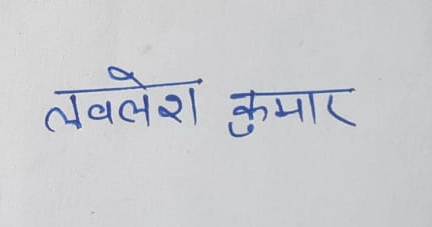 लवलेश कुमार